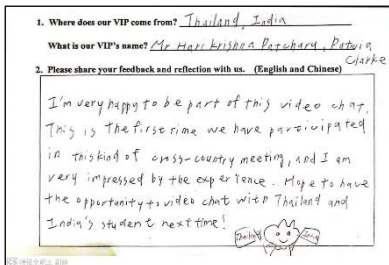 1. Where does our VIP come from? Thailand, India
What is our VIP's name? Mr Hari Krishna Patchary, Patvia Clarke
2. Please share your feedback and reflection with us. (English and Chinese)
I'm very happy to be part of this video chat.
This is the first time we have participated
in this kind of cross-country meeting, and I am
very impressed by the experience. Hope to have
the opportunity to video chat with Thailand and
India's student next time!
Thailand